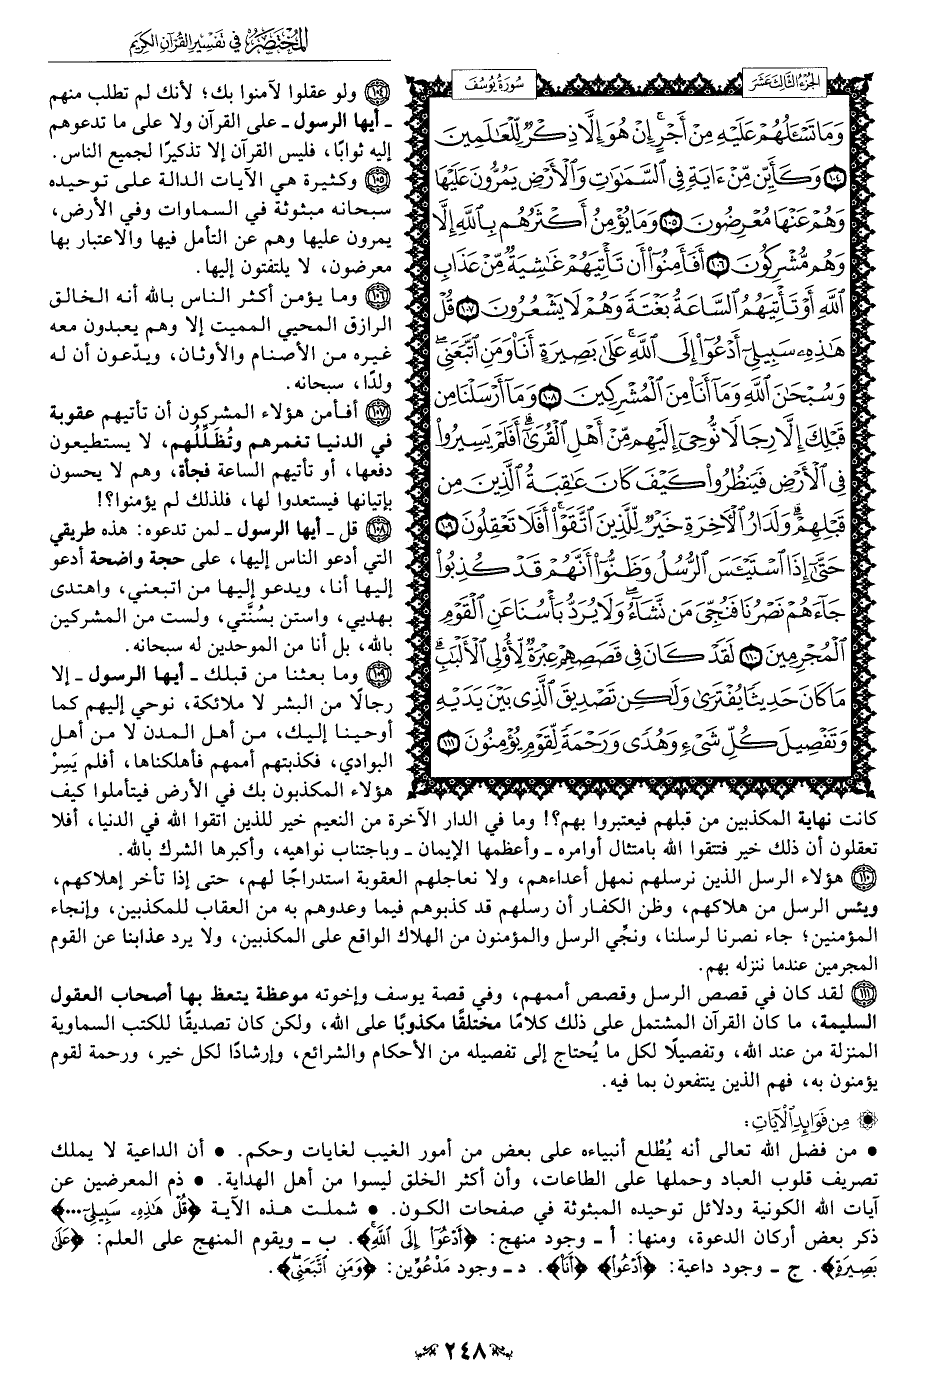 المختصر في تفسير القرآن الكريم
الجزء الثالث عشر
سورة يوسف
وَمَا تَسْـَٔلُهُمْ عَلَيْهِ مِنْ أَجْرٍ ۚ إِنْ هُوَ إِلَّا ذِكْرٌ لِّلْعَـٰلَمِينَ
١٠٤ وَكَأَيِّن مِّنْ ءَايَةٍ فِى ٱلسَّمَـٰوَٰتِ وَٱلْأَرْضِ يَمُرُّونَ عَلَيْهَا
وَهُمْ عَنْهَا مُعْرِضُونَ ١٠٥ وَمَا يُؤْمِنُ أَكْثَرُهُم بِٱللَّهِ إِلَّا
وَهُم مُّشْرِكُونَ ١٠٦ أَفَأَمِنُوٓا۟ أَن تَأْتِيَهُمْ غَـٰشِيَةٌ مِّنْ عَذَابِ
ٱللَّهِ أَوْ تَأْتِيَهُمُ ٱلسَّاعَةُ بَغْتَةً وَهُمْ لَا يَشْعُرُونَ ١٠٧ قُلْ
هَـٰذِهِۦ سَبِيلِىٓ أَدْعُوٓا۟ إِلَى ٱللَّهِ ۚ عَلَىٰ بَصِيرَةٍ أَنَا۠ وَمَنِ ٱتَّبَعَنِى ۖ
وَسُبْحَـٰنَ ٱللَّهِ وَمَآ أَنَا۠ مِنَ ٱلْمُشْرِكِينَ ١٠٨ وَمَآ أَرْسَلْنَا مِن
قَبْلِكَ إِلَّا رِجَالًا نُّوحِىٓ إِلَيْهِم مِّنْ أَهْلِ ٱلْقُرَىٰٓ ۗ أَفَلَمْ يَسِيرُوا۟
فِى ٱلْأَرْضِ فَيَنظُرُوا۟ كَيْفَ كَانَ عَـٰقِبَةُ ٱلَّذِينَ مِن
قَبْلِهِمْ ۗ وَلَدَارُ ٱلْـَٔاخِرَةِ خَيْرٌ لِّلَّذِينَ ٱتَّقَوْا۟ ۗ أَفَلَا تَعْقِلُونَ ١٠٩
حَتَّىٰٓ إِذَا ٱسْتَيْـَٔسَ ٱلرُّسُلُ وَظَنُّوٓا۟ أَنَّهُمْ قَدْ كُذِبُوا۟
جَآءَهُمْ نَصْرُنَا فَنُجِّىَ مَن نَّشَآءُ ۖ وَلَا يُرَدُّ بَأْسُنَا عَنِ ٱلْقَوْمِ
ٱلْمُجْرِمِينَ ١١٠ لَقَدْ كَانَ فِى قَصَصِهِمْ عِبْرَةٌ لِّأُو۟لِى ٱلْأَلْبَـٰبِ ۗ
مَا كَانَ حَدِيثًا يُفْتَرَىٰ وَلَـٰكِن تَصْدِيقَ ٱلَّذِى بَيْنَ يَدَيْهِ
وَتَفْصِيلَ كُلِّ شَىْءٍ وَهُدًى وَرَحْمَةً لِّقَوْمٍ يُؤْمِنُونَ ١١١
١٠٤ ولو عقلوا لآمنوا بك؛ لأنك لم تطلب منهم
ـ أيها الرسول ـ على القرآن ولا على ما تدعوهم
إليه ثوابًا، فليس القرآن إلا تذكيرًا لجميع الناس.
١٠٥ وكثيرة هي الآيات الدالة على توحيده
سبحانه مبثوثة في السماوات وفي الأرض،
يمرون عليها وهم عن التأمل فيها والاعتبار بها
معرضون، لا يلتفتون إليها.
١٠٦ وما يؤمن أكثر الناس بالله أنه الخالق
الرازق المحيي المميت إلا وهم يعبدون معه
غيره من الأصنام والأوثان، ويدّعون أن له
ولدًا، سبحانه.
١٠٧ أفـأمن هؤلاء المشركون أن تأتيهم عقوبة
في الدنيا تغمرهم وتُظَلِّلُهم، لا يستطيعون
دفعها، أو تأتيهم الساعة فجأة، وهم لا يحسون
بإتيانها فيستعدوا لها، فلذلك لم يؤمنوا؟!
١٠٨ قل ـ أيها الرسول ـ لمن تدعوه: هذه طريقي
التي أدعو الناس إليها، على حجة واضحة أدعو
إليها أنا، ويدعو إليها من اتبعني، واهتدى
بهديي، واستن بسُنَّتي، ولست من المشركين
بالله، بل أنا من الموحدين له سبحانه.
١٠٩ وما بعثنا من قبلك ـ أيها الرسول ـ إلا
رجالًا من البشر لا ملائكة، نوحي إليهم كما
أوحينا إليك، من أهل المدن لا من أهل
البوادي، فكذبتهم أممهم فأهلكناها، أفلم يَسِرْ
هؤلاء المكذبون بك في الأرض فيتأملوا كيف
كانت نهاية المكذبين من قبلهم فيعتبروا بهم؟! وما في الدار الآخرة من النعيم خير للذين اتقوا الله في الدنيا، أفلا
تعقلون أن ذلك خير فتتقوا الله بامتثال أوامره ـ وأعظمها الإيمان ـ وباجتناب نواهيه، وأكبرها الشرك بالله.
١١٠ هؤلاء الرسل الذين نرسلهم نمهل أعداءهم، ولا نعاجلهم العقوبة استدراجًا لهم، حتى إذا تأخر إهلاكهم،
ويئس الرسل من هلاكهم، وظن الكفار أن رسلهم قد كذبوهم فيما وعدوهم به من العقاب للمكذبين، وإنجاء
المؤمنين؛ جاء نصرنا لرسلنا، ونجِّي الرسل والمؤمنون من الهلاك الواقع على المكذبين، ولا يرد عذابنا عن القوم
المجرمين عندما ننزله بهم.
١١١ لقد كان في قصص الرسل وقصص أممهم، وفي قصة يوسف وإخوته موعظة يتعظ بها أصحاب العقول
السليمة، ما كان القرآن المشتمل على ذلك كلامًا مختلقًا مكذوبًا على الله، ولكن كان تصديقًا للكتب السماوية
المنزلة من عند الله، وتفصيلًا لكل ما يُحتاج إلى تفصيله من الأحكام والشرائع، وإرشادًا لكل خير، ورحمة لقوم
يؤمنون به، فهم الذين ينتفعون بما فيه.
من فوائد الآيات:
• من فضل الله تعالى أنه يُطْلع أنبياءه على بعض من أمور الغيب لغايات وحكم. • أن الداعية لا يملك
تصريف قلوب العباد وحملها على الطاعات، وأن أكثر الخلق ليسوا من أهل الهداية. • ذم المعرضين عن
آيات الله الكونية ودلائل توحيده المبثوثة في صفحات الكون. • شملت هذه الآية ﴿قُلْ هَـٰذِهِۦ سَبِيلِىٓ...﴾
ذكر بعض أركان الدعوة، ومنها: أ ـ وجود منهج: ﴿أَدْعُوٓا۟ إِلَى ٱللَّهِ ۚ﴾. ب ـ ويقوم المنهج على العلم: ﴿عَلَىٰ
بَصِيرَةٍ﴾. ج ـ وجود داعية: ﴿أَدْعُوٓا۟﴾ ﴿أَنَا۠﴾. د ـ وجود مَدْعُوِّين: ﴿وَمَنِ ٱتَّبَعَنِى ۖ﴾.
٢٤٨